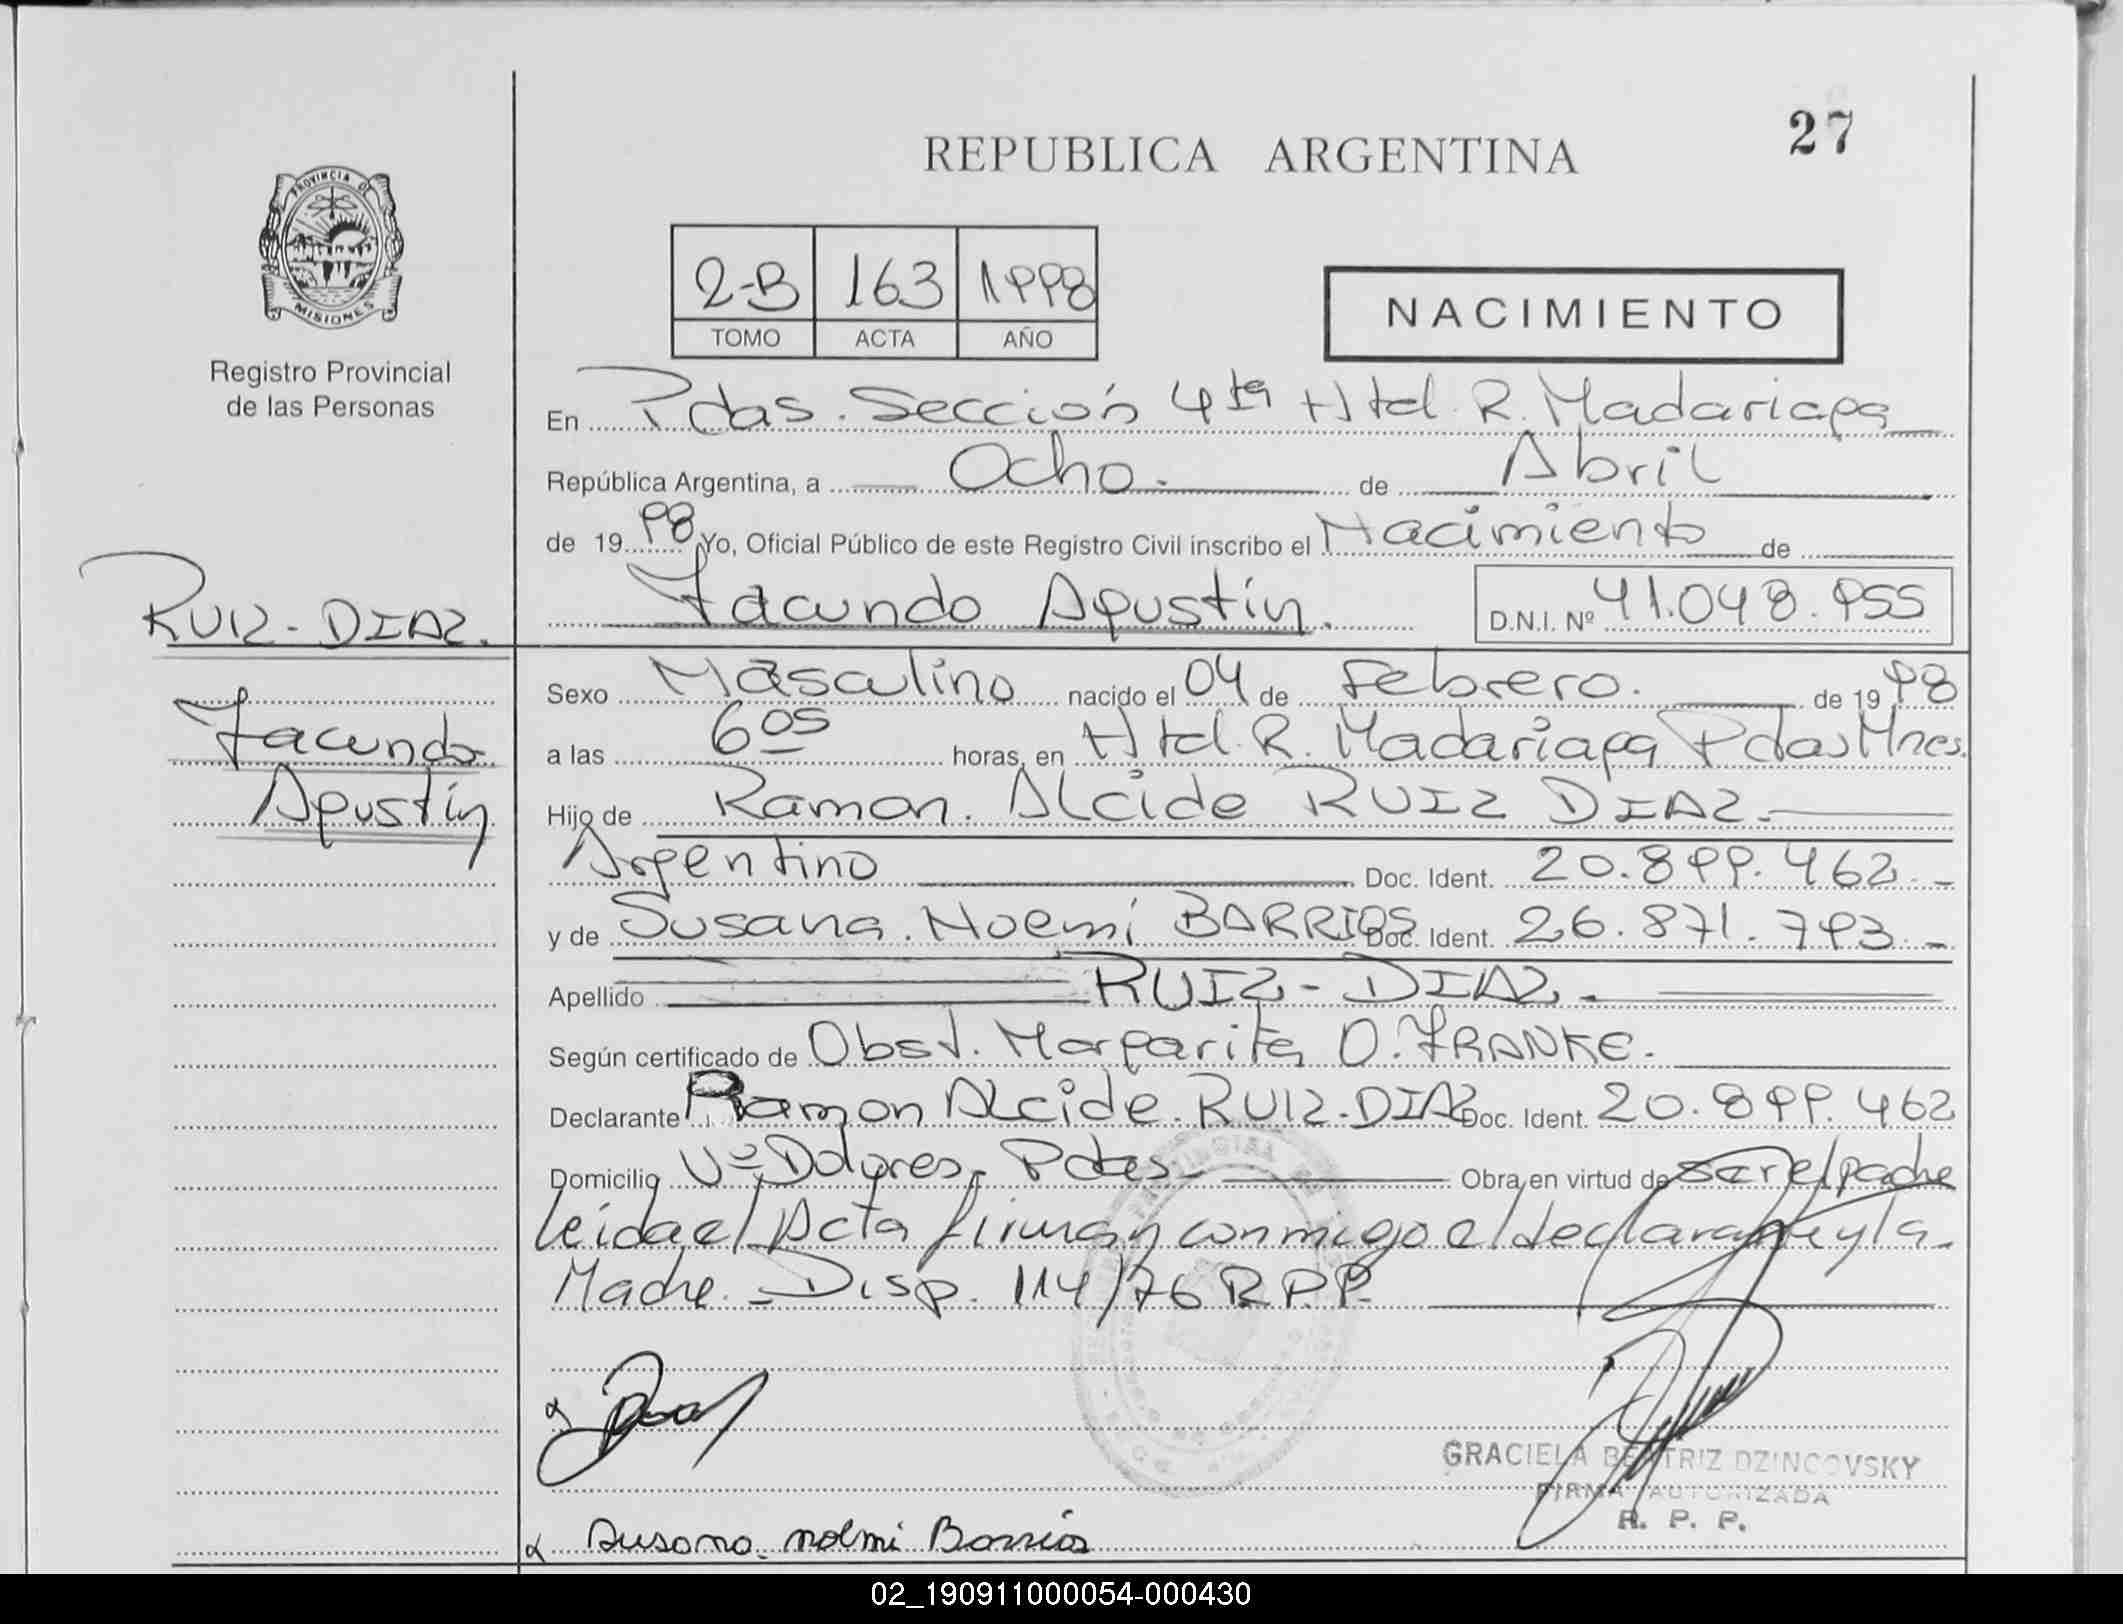 27
REPUBLICA ARGENTINA
PROVINCIA DE
MISIONES
Registro Provincial
de las Personas
2-B 163 1998
TOMO ACTA AÑO
NACIMIENTO
En Pdas. Sección 4ta Htal. R. Madariaga
República Argentina, a Ocho. de Abril
de 1998 Yo, Oficial Público de este Registro Civil inscribo el Nacimiento de
Facundo Agustín. D.N.I. Nº 41.048.955
RUIZ-DIAZ.
Facundo
Agustín
Sexo Masculino nacido el 04 de Febrero. de 1998
a las 6 05 horas, en Htal. R. Madariaga Pdas Mnes.
Hijo de Ramon. Alcide RUIZ DIAZ.
Argentino Doc. Ident. 20.899.462.-
y de Susana. Noemí BARRIOS Doc. Ident. 26.871.793.-
Apellido RUIZ-DIAZ.-
Según certificado de Obst. Margarita O. FRANKE.
Declarante Ramon Alcide. RUIZ-DIAZ Doc. Ident. 20.899.462
Domicilio Vº Dolores, Pdas Obra en virtud de ser el padre
leida el Acta firman conmigo el declarante y la
Madre.- Disp. 114/76 R.P.P.
GRACIELA BEATRIZ DZINCOVSKY
FIRMA AUTORIZADA
R. P. P.
Susana. noemi Barrios
02_190911000054-000430